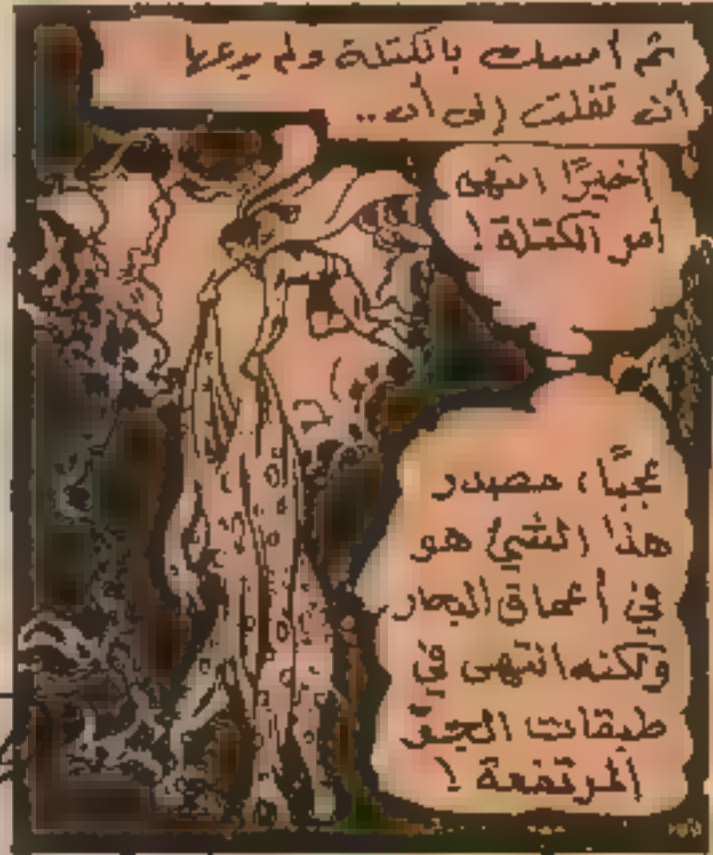 ثم أمسك بالكتلة ولم يدعها
أن تفلت إلى أن..
أخيرًا انتهى
أمر الكتلة!
عجبًا، مصدر
هذا الشيء هو
في أعماق البحار
ولكنه انتهى في
طبقات الجو
المرتفعة!